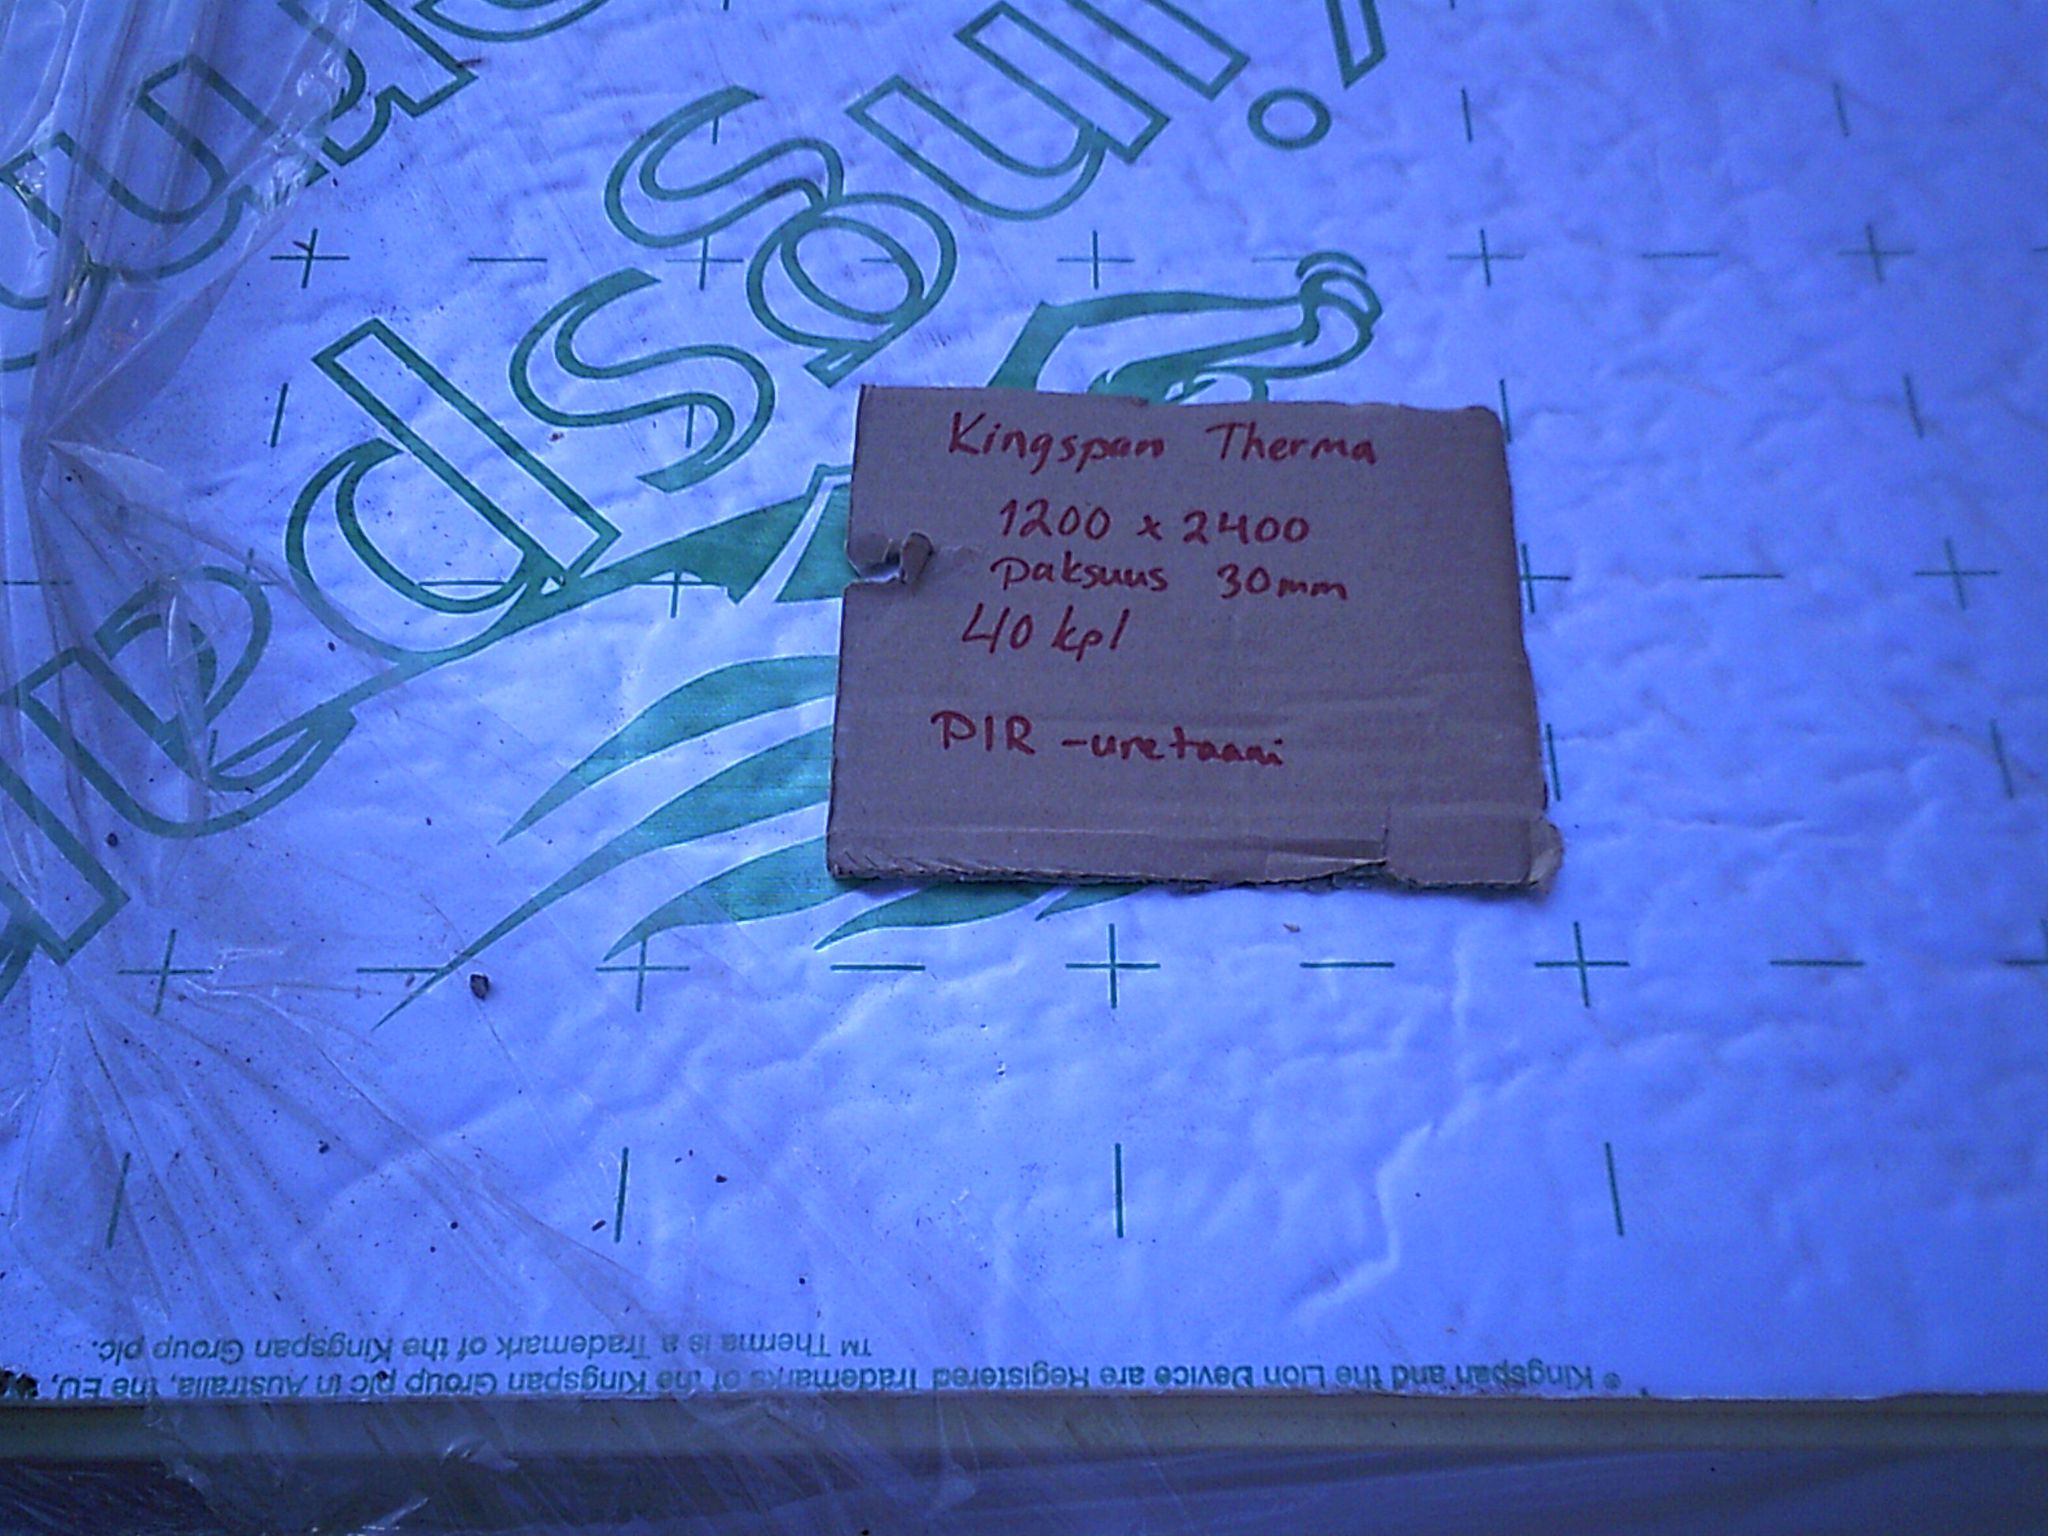 Kingspan
Kingspan Therma
1200 x 2400
paksuus 30mm
40 kpl
PIR -uretaani
® Kingspan and the Lion Device are Registered Trademarks of the Kingspan Group plc in Australia, the EU,
™ Therma is a Trademark of the Kingspan Group plc.